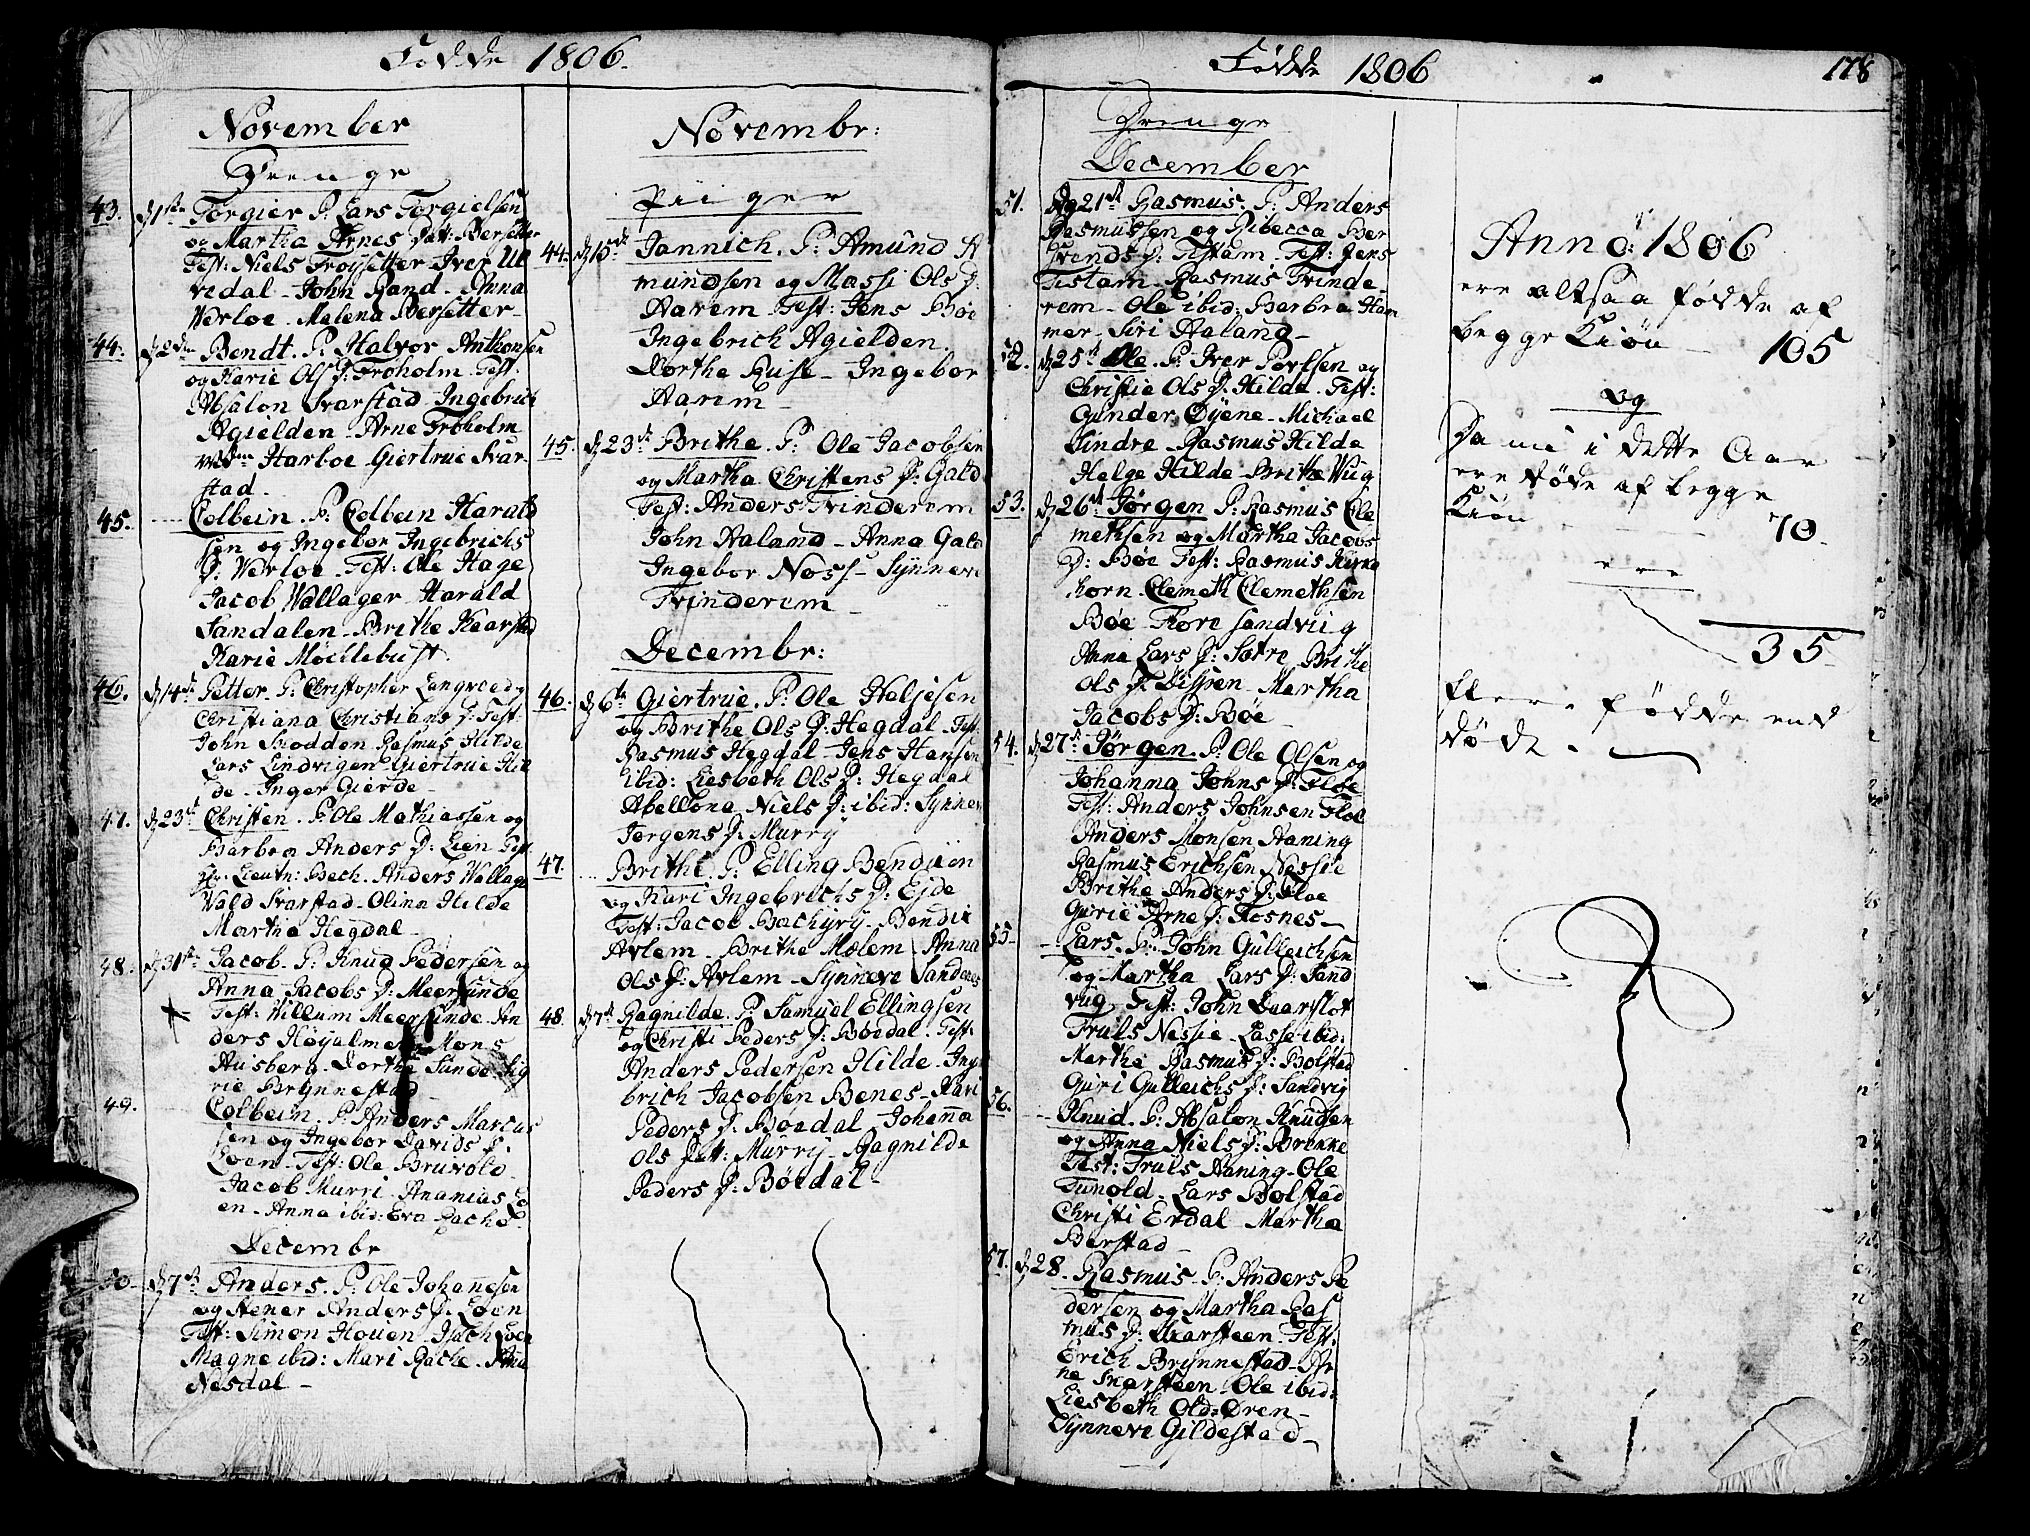 Fødde 1806.
November
Drenge
43. d 1ste Torgier. P: Lars Torgielsen
og Martha Arnes Datt: Bersetter
Test: Niels Froysetter Iver Ul
vedal - John Rand - Anna
Verloe. Malena Bersetter -
44. d 2den Bendt. P: Halvor Anthonsen
og Karie Ols D: Froholm. Test.
Absalon Svarstad - Ingebrich
Agielden - Arne Froholm
Mdm Harboe Giertrue Svar
stad.
45. Colbein. P: Colbein Harals
sen og Ingebor Ingebrichs
D: Verloe. Test: Ole Hage
Jacob Vallager. Harald
Sandalen - Brithe Kaarstad
Karie Mochlebust.
46. d 14de Petter. P: Christopher Langvoed og
Christiana Christians D: Test:
John Skodden Rasmus Hilde
Lars Lindvigen Giertrue Hil
de - Inger Gierde -
47. d 23de Christen. P: Ole Mathiassen og
Barbra Anders D: Lien Test
Hr: Lieutn: Bech. Anders Vallage
Vald Svarstad - Olina Hilde
Martha Hegdal -
48. d 31te Jacob. P: Knud Pedersen og
Anna Jacobs D: Meersunde
Test: Willum Meersunde. An
ders Høyalme Mons
Auisberg - Dorthe Sunde Sig
rie Brynnestad
49. Colbein. P: Anders Marcus
sen og Ingebor Davids D:
Loen - Test: Ole Bruvold
Jacob Murri - Ananias Lo
en - Anna ibid: Eva Rache
Decembr
50. d 7de Anders. P: Ole Johanesen
og Stener Anders D: Loen
Test: Simon Houen. Isach Loen
Magne ibid: Mari Rache - Anna
Nesdal -
Novembr:
Piiger
44. d 15de Jannich. P: Amund A
mundsen og Massi Ols D:
Aarem - Test: Jens Bøe
Ingebrich Agielden.
Dorthe Ruse - Ingebor
Aarem -
45. d 23de Brithe. P: Ole Jacobsen
og Martha Christens D: Gald
Test: Anders Tvinderem
John Aaland - Anna Gald
Ingebor Noss - Synneve
Tvinderem -
Decembr:
46. d 6te Giertrue. P: Ole Heljesen
og Brithe Ols D: Hegdal. Test:
Rasmus Hegdal - Jens Hansen
ibid: Liesbeth Ols D: Hegdal
Abellona Niels D: ibid: Synnev
Jørgens D: Murry
47. Brithe. P: Elling Bendixen
og Kari Ingebrichs D: Ejde
Test: Jacob Bachyry - Bendix
Avlem - Brithe Molem Anna
Ols D: Avlem - Synneve Sandenes
48. d 7de Ragnilde. P: Samuel Ellingsen
og Christi Peders D: Boedal. Test:
Anders Pedersen Hilde. Inge
brich Jacobsen Benes - Kari
Peders D: Bøedal Johanna
Ols Datt: Murry - Ragnilde
Peders D: Bøedal -
Fødde 1806
178
Drenge
December
51. Dg 21de Rasmus. P: Anders
Rasmussen og Ribecca Ber
hvends D: Tistam - Test: Jens
Tistam - Rasmus Tvinde
rem - Ole ibid: Barbra Ham
mer - Siri Aaland -
52. d 25de Ole. P: Iver Povlsen og
Christie Ols D: Hilde. Test:
Gunder Øyene - Michael
Sindre - Rasmus Hilde
Helge Hilde - Brithe Wiig
53. d 26de Jørgen P: Rasmus Cle
methsen og Martha Jacobs
D: Bøe Test: Rasmus Kirke
horn - Clemeth Clemethsen
Bøe - Tore Sandviig
Anna Lars D: Sætre Brithe
Ols D: Dispen - Martha
Jacobs D: Bøe -
54. d 27de Jørgen. P: Ole Olsen og
Johanna Johns D: Floe
Test: Anders Johnsen Floe
Anders Monsen Haning
Rasmus Erichsen Nessie
Brithe Anders D: Floe
Gurie Arne D: Tosnes -
55 - Lars. P: John Gulleichsen
og Martha Lars D: Sand
viig Test: John Daarslot
Truls Nessie - Lasse ibid:
Martha Rasmus D: Bolstad
Guri Gulleichs D: Sandvig
56. Knud. P: Absalon Knudsen
og Anna Niels D: Brekke
Test: Truls Haning - Ole
Tunold. Lars Bolstad
Christi Erdal Martha
Berstad -
57. d 28. Rasmus. P: Anders Pe
dersen og Martha Ras
mus D: Skarsteen. Test:
Erich Brynnestad - Ar
ne Skarsteen. Ole ibid:
Liesbeth Old-Øren -
Synneve Gildestad -
Anno: 1806
ere altsaa fødde af
begge Kiøn - 105
og
Da nu i dette Aar
ere døde af begge
Kiøn - - - 70.
ere
35
fleere fødde end
døde. -